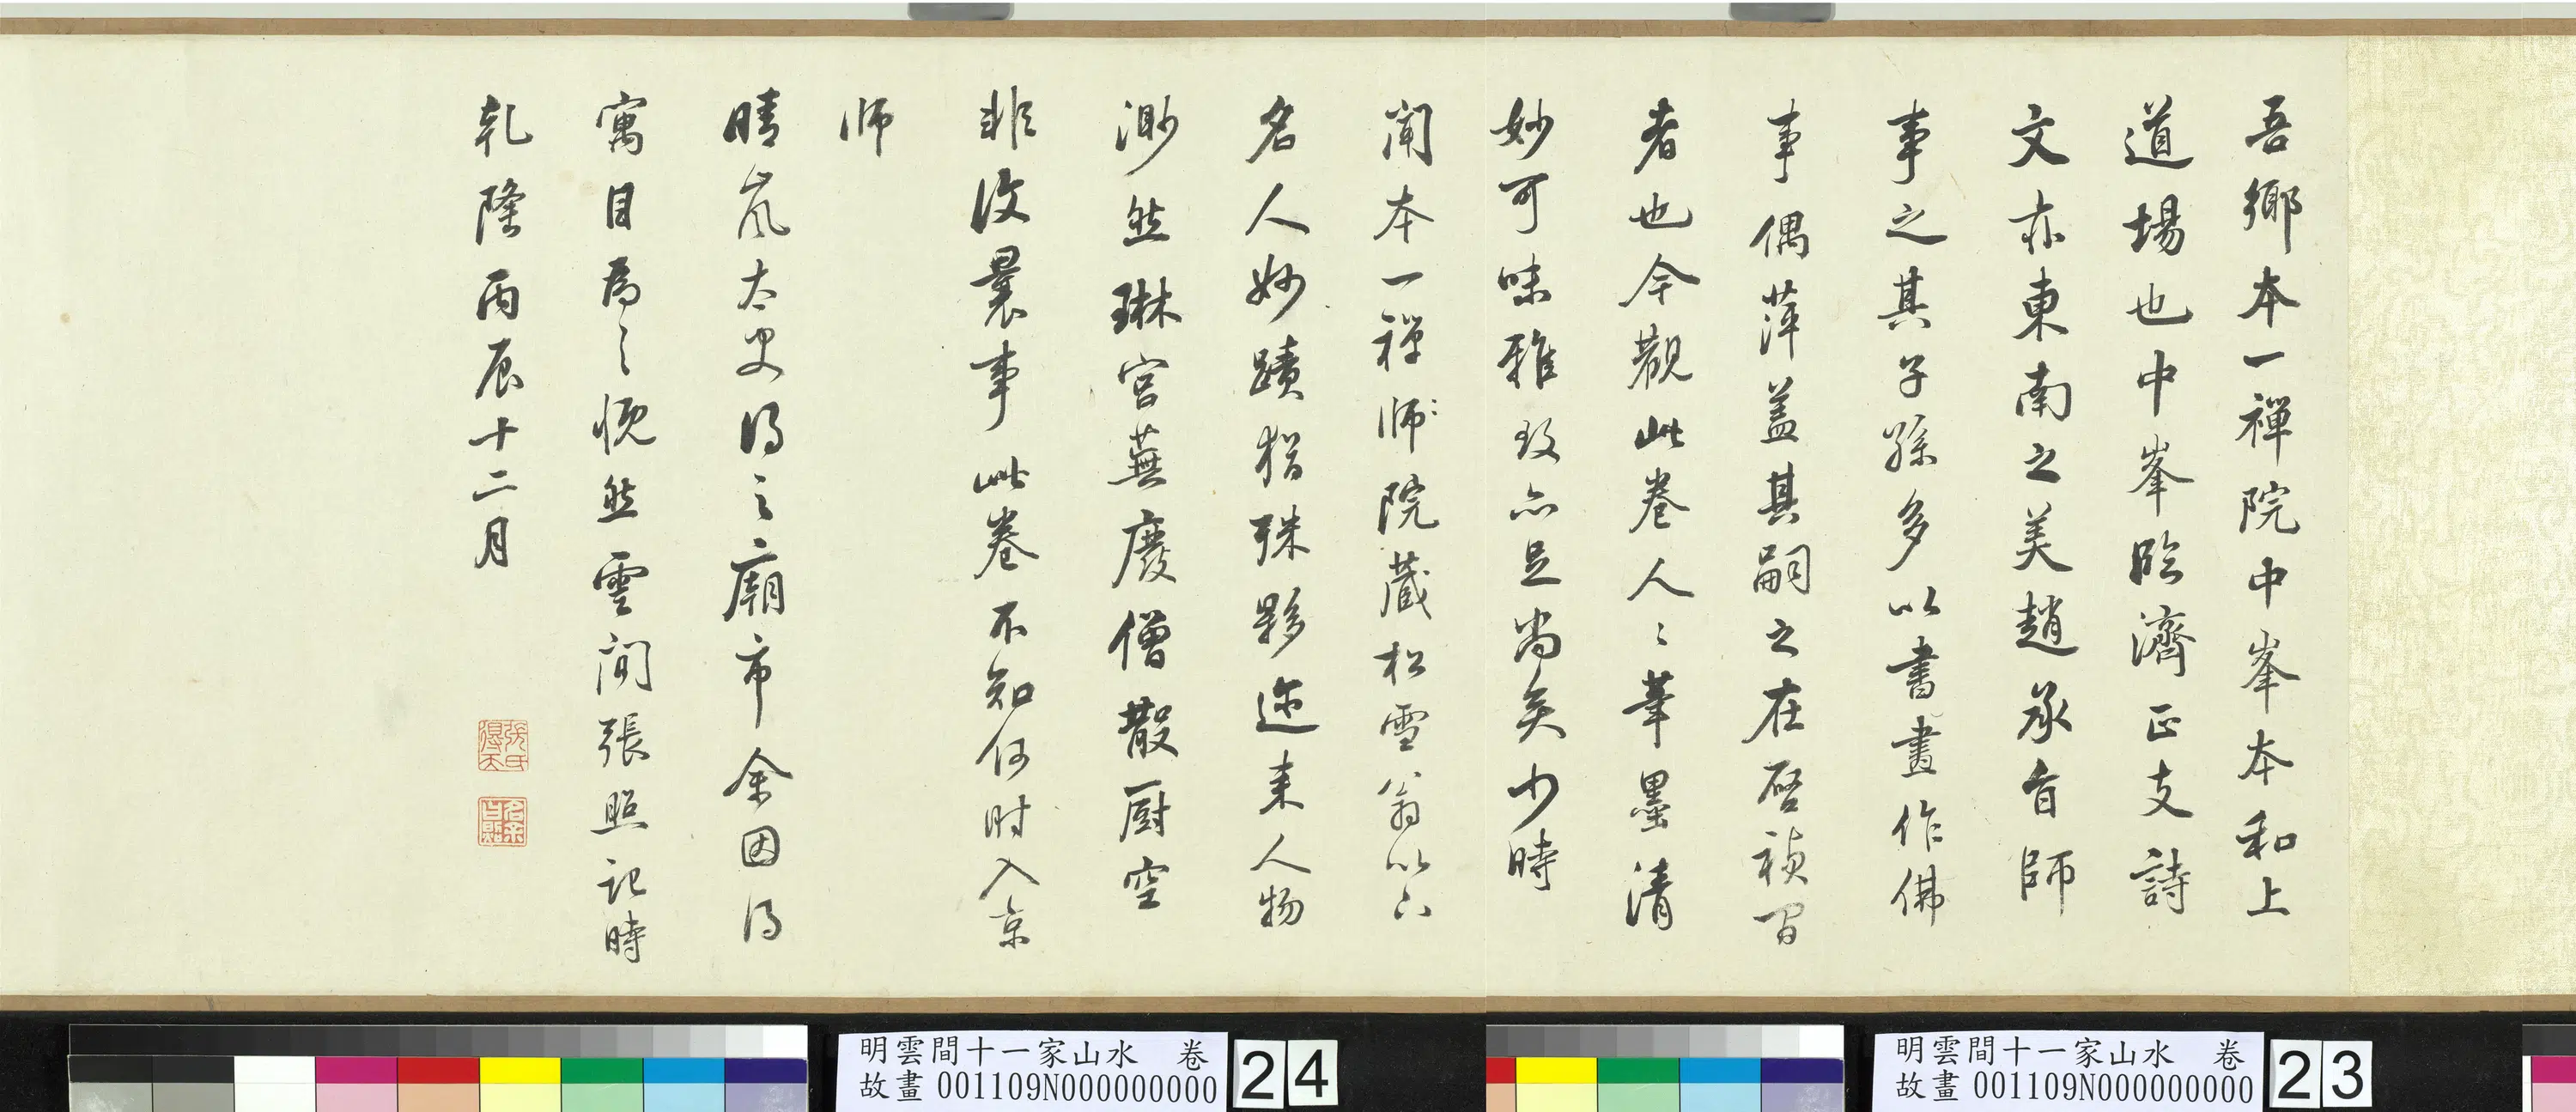 吾鄉本一禪院中峯本和上
道場也中峯臨濟正支詩
文亦東南之美趙承旨師
事之其子孫多以書畫作佛
事偶萍蓋其嗣之在啓禎間
者也今觀此卷人〻筆墨清
妙可味雅致亦足尚矣少時
聞本一禪師院藏松雪翁以下
名人妙蹟猶殊夥邇來人物
渺然琳宮蕪廢僧散厨空
非復曩事此卷不知何时入京
师
晴嵐太史得之廟市余因得
寓目為之慨然雲間張照記時
乾隆丙辰十二月
張氏得天
明雲間十一家山水 卷
故畫 001109N000000000
24
明雲間十一家山水 卷
故畫 001109N000000000
23